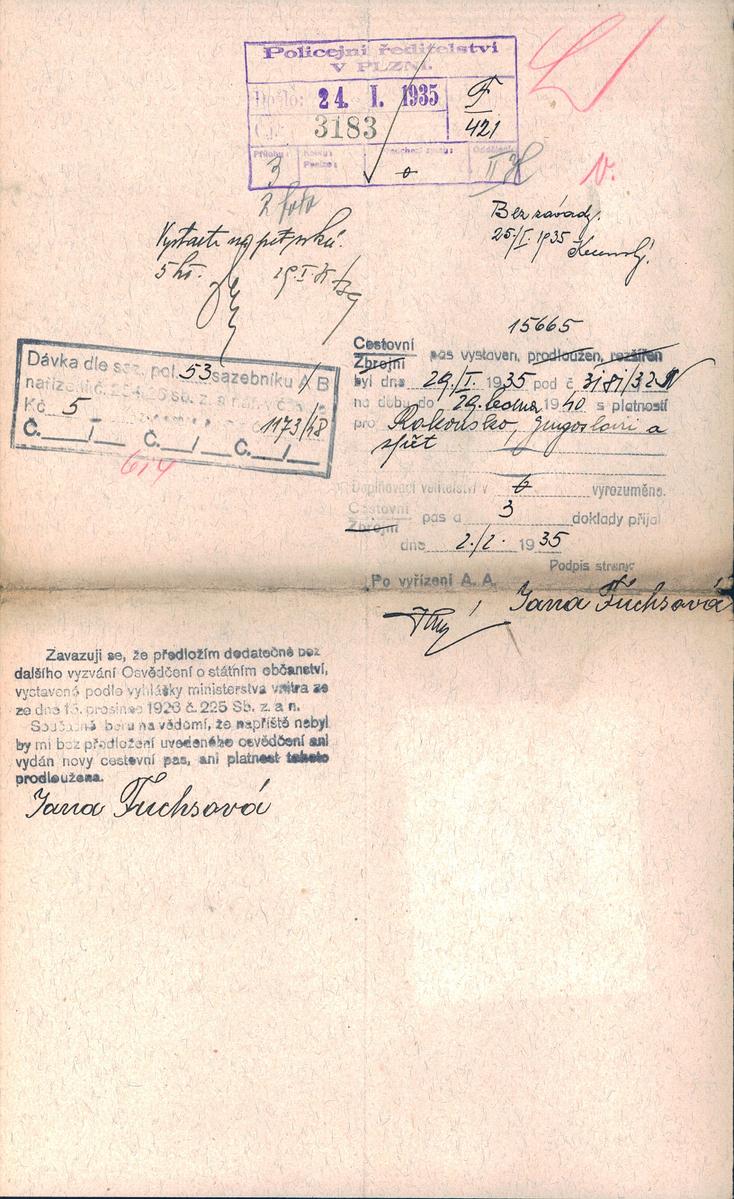 Policejní ředitelství
V PLZNI.
Došlo: 24. I. 1935
F
421
Č.j.: 3183
Přílohy: 3
Kolky:
Peníze:
Oddělení: II
2 foto
v.
Bez závady.
25./I. 1935
Vystavte na pět roků.
5 kč.
15665
Cestovní
Zbrojní pas vystaven, prodloužen, rozšířen
byl dne 29./I. 1935 pod č
na dobu do 29. ledna 1940 s platností
pro Rakousko, Jugoslavii a
zpět
Doplňovací velitelství v vyrozuměno.
Cestovní
Zbrojní pas a 3 doklady přijal
dne 2./2. 1935
Podpis strany:
Po vyřízení A. A.
Jana Fuchsová
Dávka dle saz. pol. 53 sazebníku A B
nařízení č.
Kč 5
1173/48
Č. / Č. / Č. /
614
Zavazuji se, že předložím dodatečně bez
dalšího vyzvání Osvědčení o státním občanství,
vystavené podle vyhlášky ministerstva vnitra ze
ze dne 15. prosince 1926 č. 225 Sb. z. a n.
Současně beru na vědomí, že napříště nebyl
by mi bez předložení uvedeného osvědčení ani
vydán nový cestovní pas, ani platnost tohoto
prodloužena.
Jana Fuchsová